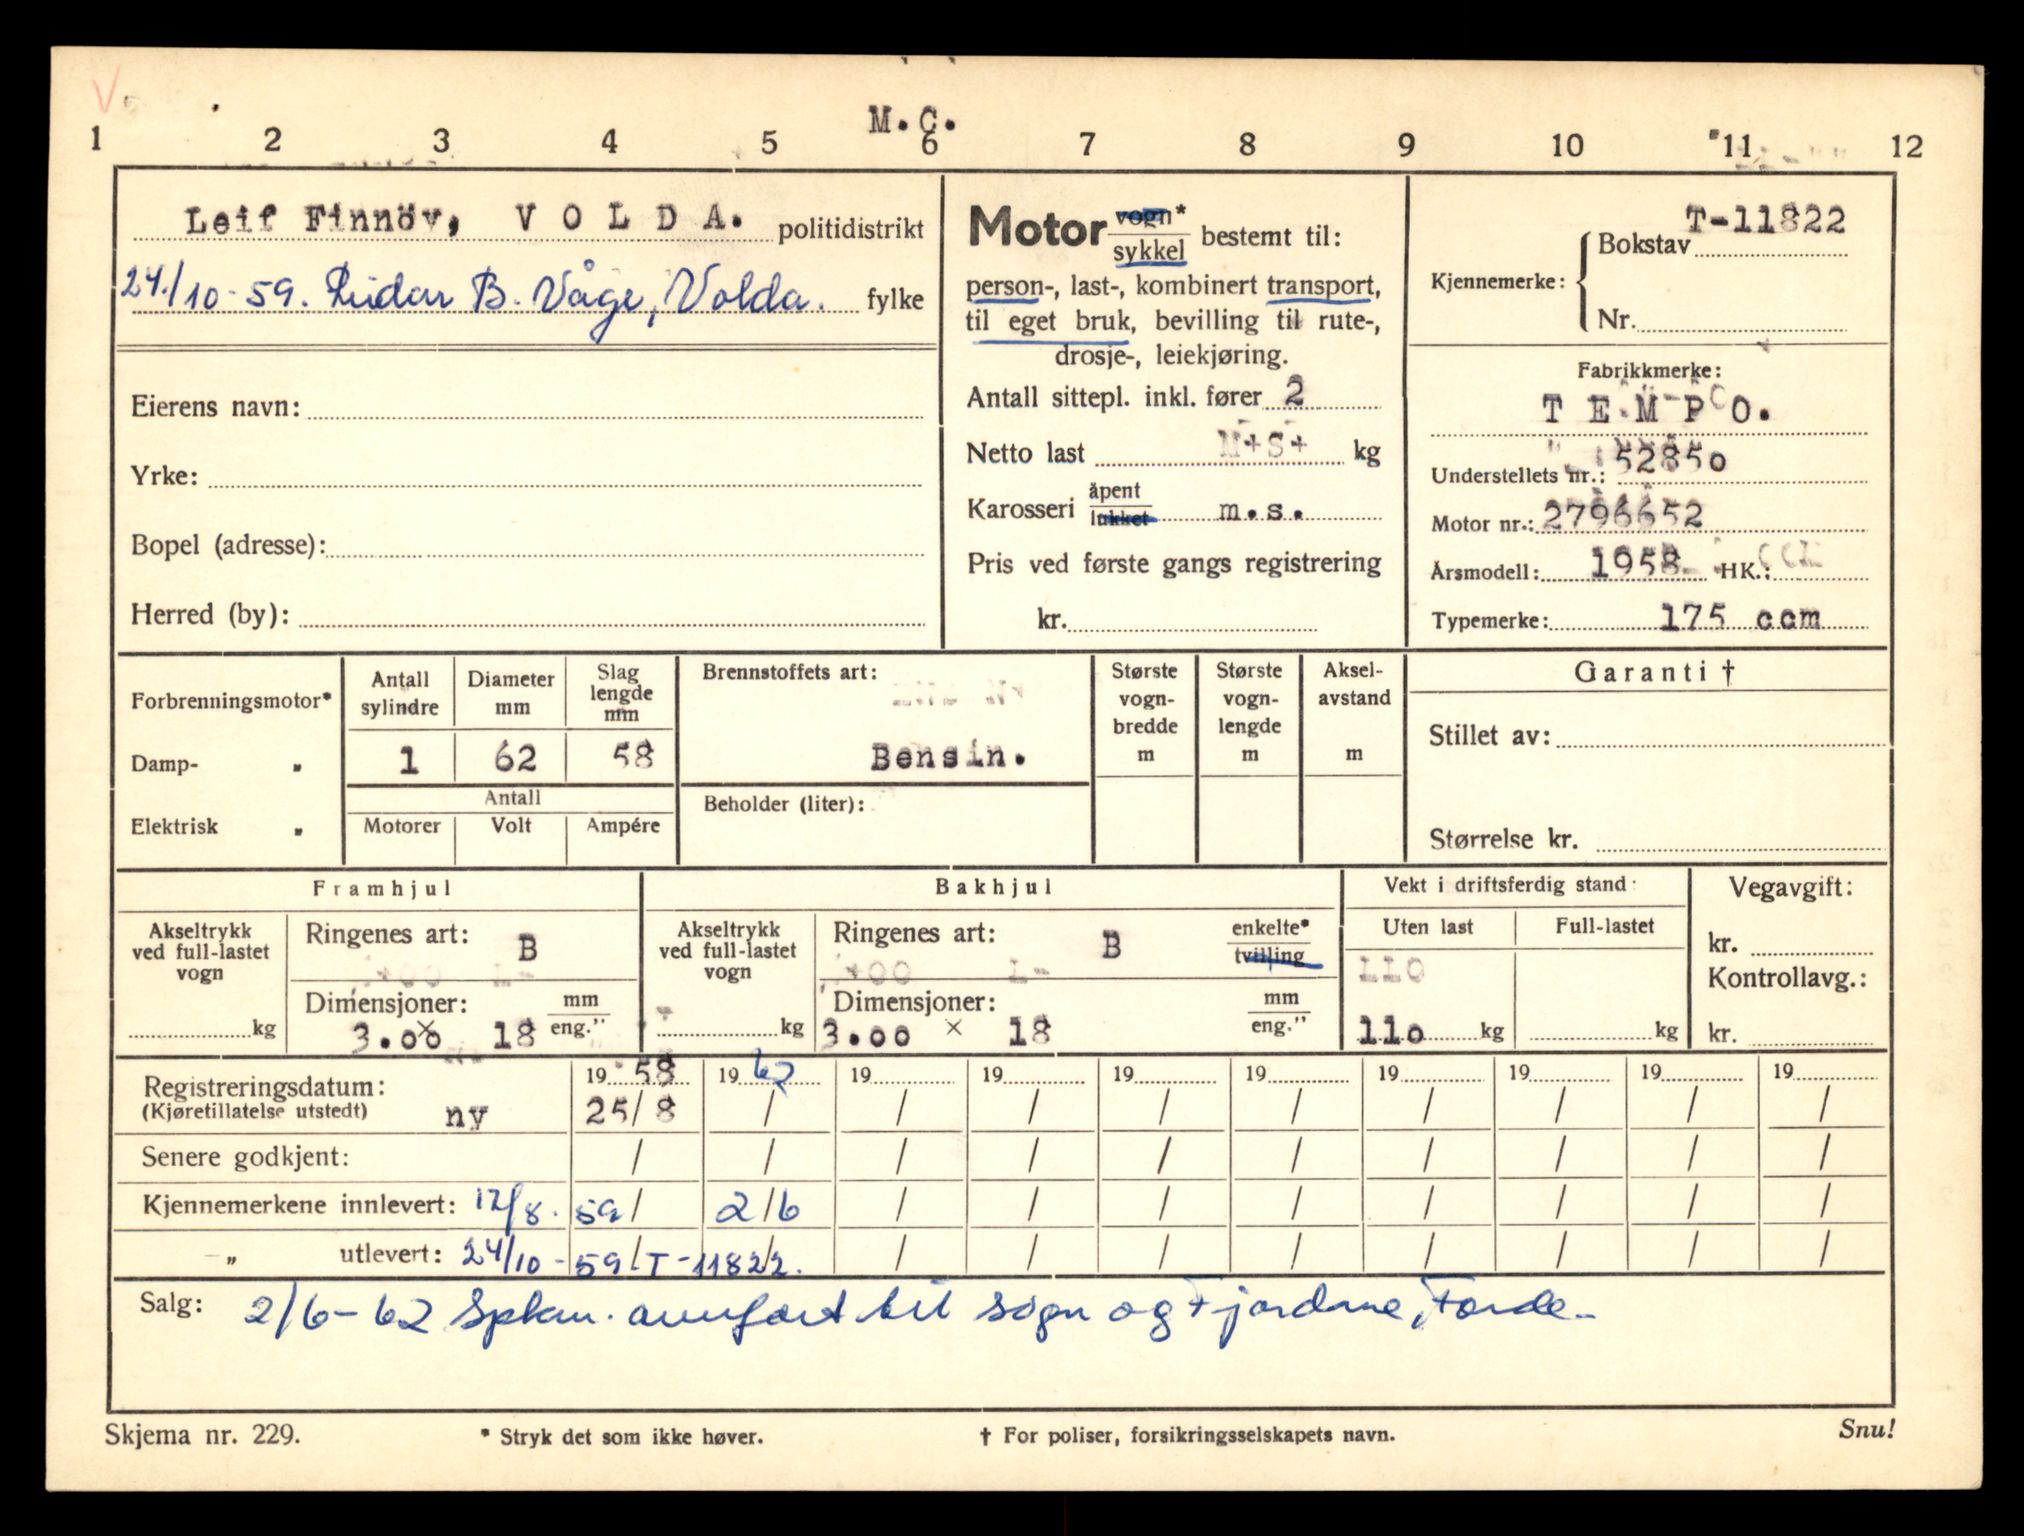 M.C.
1 2 3 4 5 6 7 8 9 10 11 12
Leif Finnöy, V O L D A. politidistrikt
24/10-59. Reidar B. Våge, Volda. fylke
Eierens navn:
Yrke:
Bopel (adresse):
Herred (by):
Motor vogn* / sykkel bestemt til:
person-, last-, kombinert transport,
til eget bruk, bevilling til rute-,
drosje-, leiekjøring.
Antall sittepl. inkl. fører 2
Netto last M+S+ kg
Karosseri åpent / lukket m.s.
Pris ved første gangs registrering
kr.
T-11822
Kjennemerke: Bokstav
Nr.
Fabrikkmerke:
T E M P O.
Understellets nr.: 52850
Motor nr.: 2796652
Årsmodell: 1958 HK.:
Typemerke: 175 ccm
Forbrenningsmotor*
Damp- "
Elektrisk "
Antall sylindre Diameter mm Slag lengde mm
1 62 58
Antall
Motorer Volt Ampére
Brennstoffets art:
Bensin.
Beholder (liter):
Største vogn-bredde m
Største vogn-lengde m
Aksel-avstand m
Garanti †
Stillet av:
Størrelse kr.
Framhjul
Akseltrykk ved full-lastet vogn
kg
Ringenes art: B
Dimensjoner: mm / eng."
3.00 × 18
Bakhjul
Akseltrykk ved full-lastet vogn
kg
Ringenes art: B enkelte* / tvilling
Dimensjoner: mm / eng."
3.00 × 18
Vekt i driftsferdig stand:
Uten last Full-lastet
110
110 kg kg
Vegavgift:
kr.
Kontrollavg.:
kr.
19 58 19 62 19 19 19 19 19 19 19 19
Registreringsdatum:
(Kjøretillatelse utstedt) ny 25/8 / / / / / / / / /
Senere godkjent: / / / / / / / / / /
Kjennemerkene innlevert: 12/8. 59 / 2/6 / / / / / / / /
—„— utlevert: 24/10-59 / T-11822. / / / / / / / /
Salg: 2/6-62 Spkm. overført til Sogn og Fjordane, Førde.
Skjema nr. 229. * Stryk det som ikke høver. † For poliser, forsikringsselskapets navn. Snu!